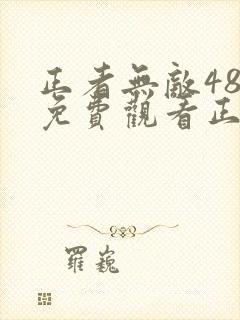 正者無敵48
免費觀看正
羅巍